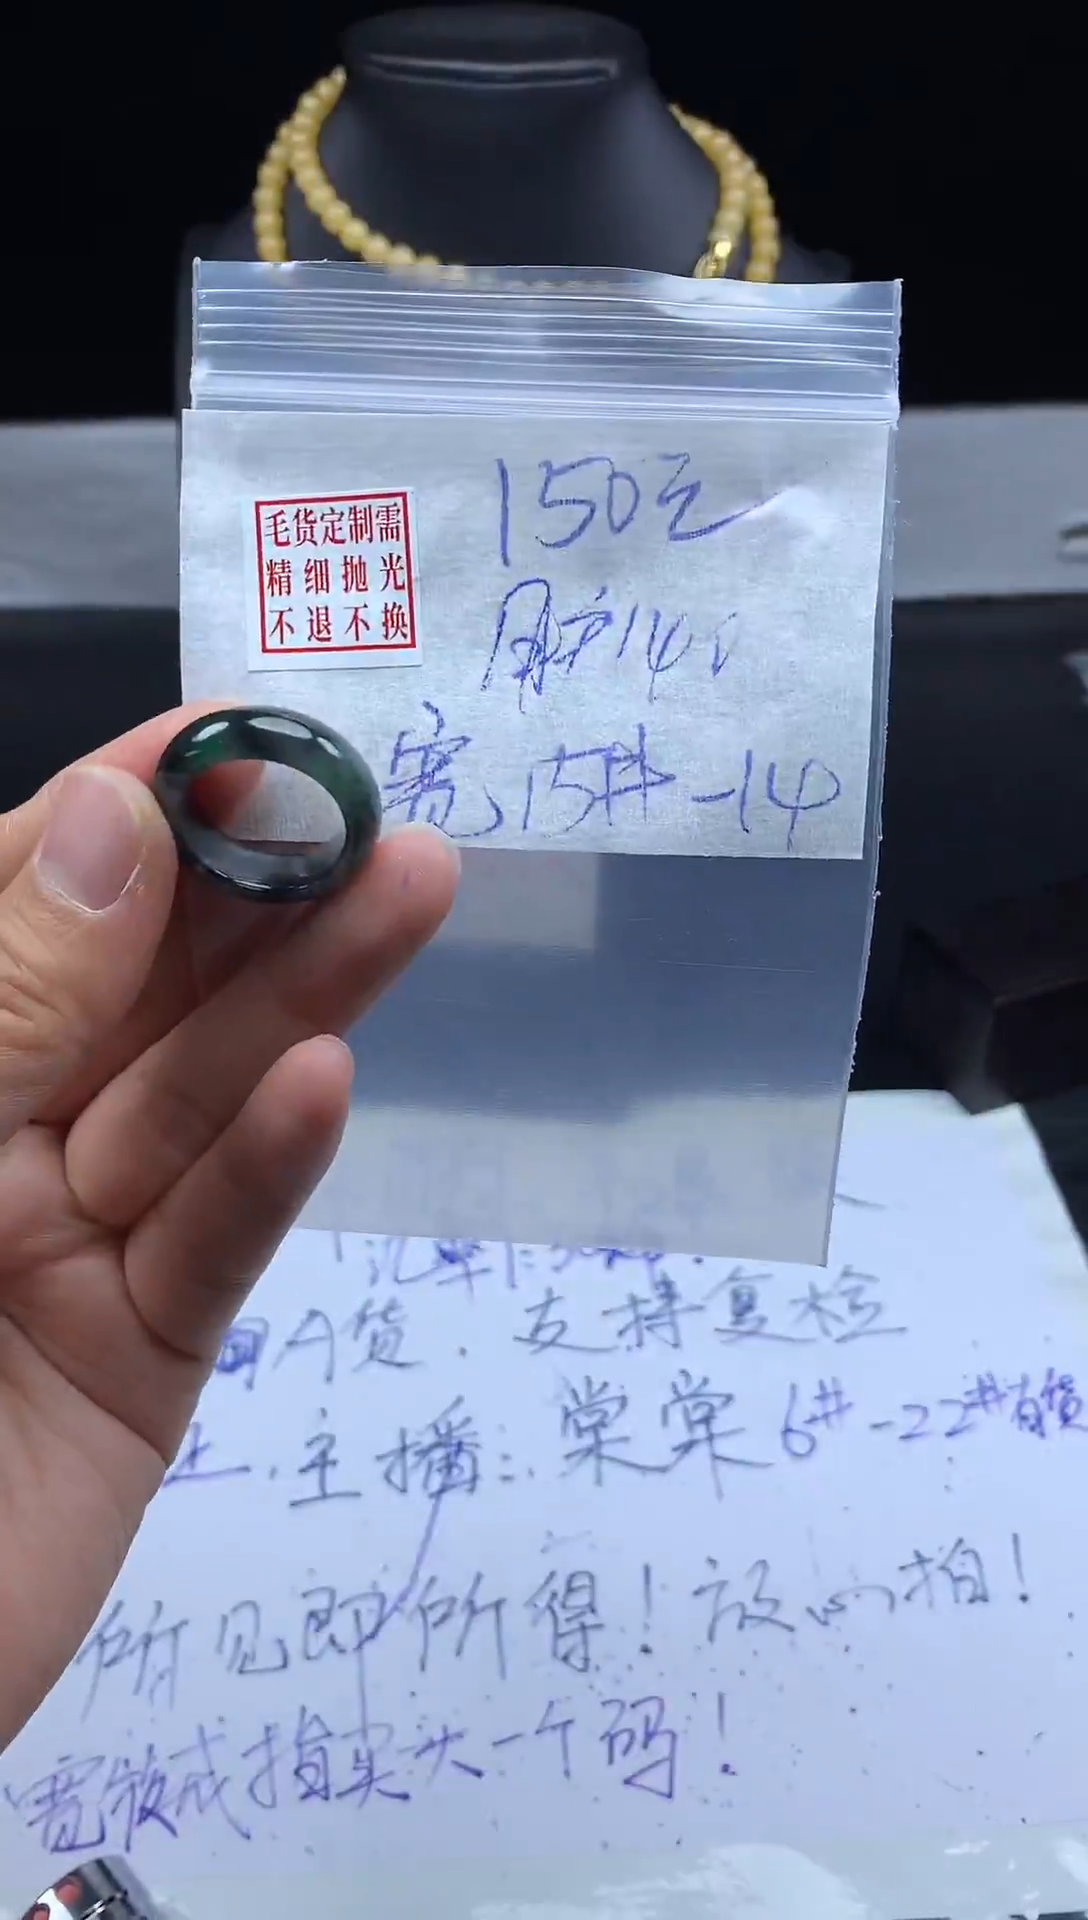 150元
毛货定制需
精细抛光
不退不换
用户140
宽15#-14
A货.支持复检
主播:棠棠 6#-22#有货
所见即所得!放心拍!
宽版戒指买大一个码!